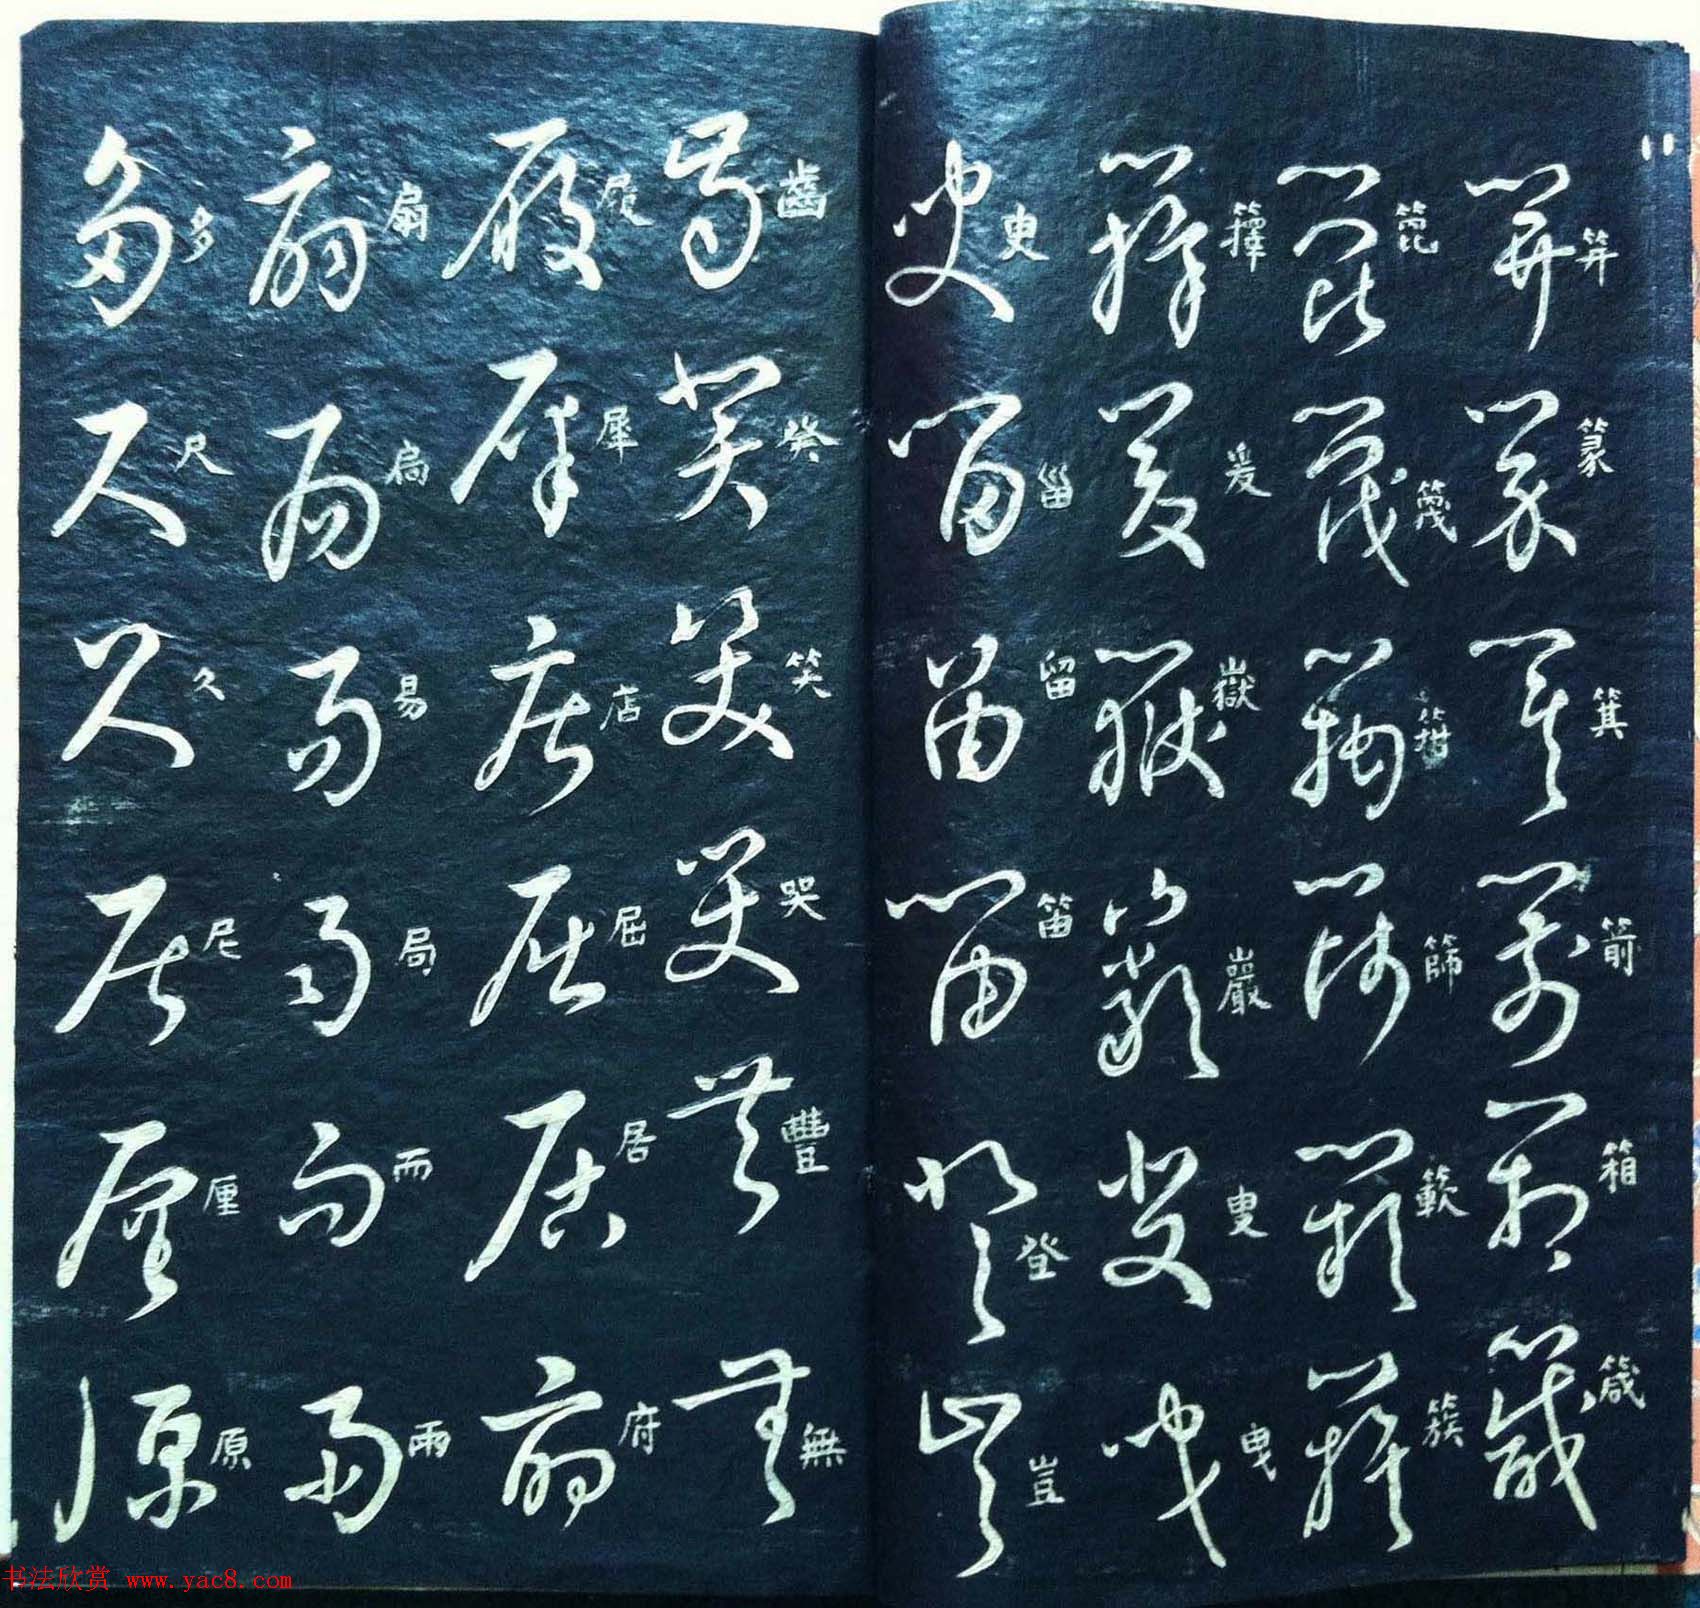 笄 篆 箕 箭 箱 箴
箆 篾 箝 篩 簌 簇
籜 爰 嶽 巖 叟 曳
吏 甾 留 笛 登 豈
齒 癸 笑 哭 豐 無
履 犀 店 屈 居 府
扇 扃 易 局 而 雨
多 尺 久 尼 厘 原
书法欣赏 www.yac8.com